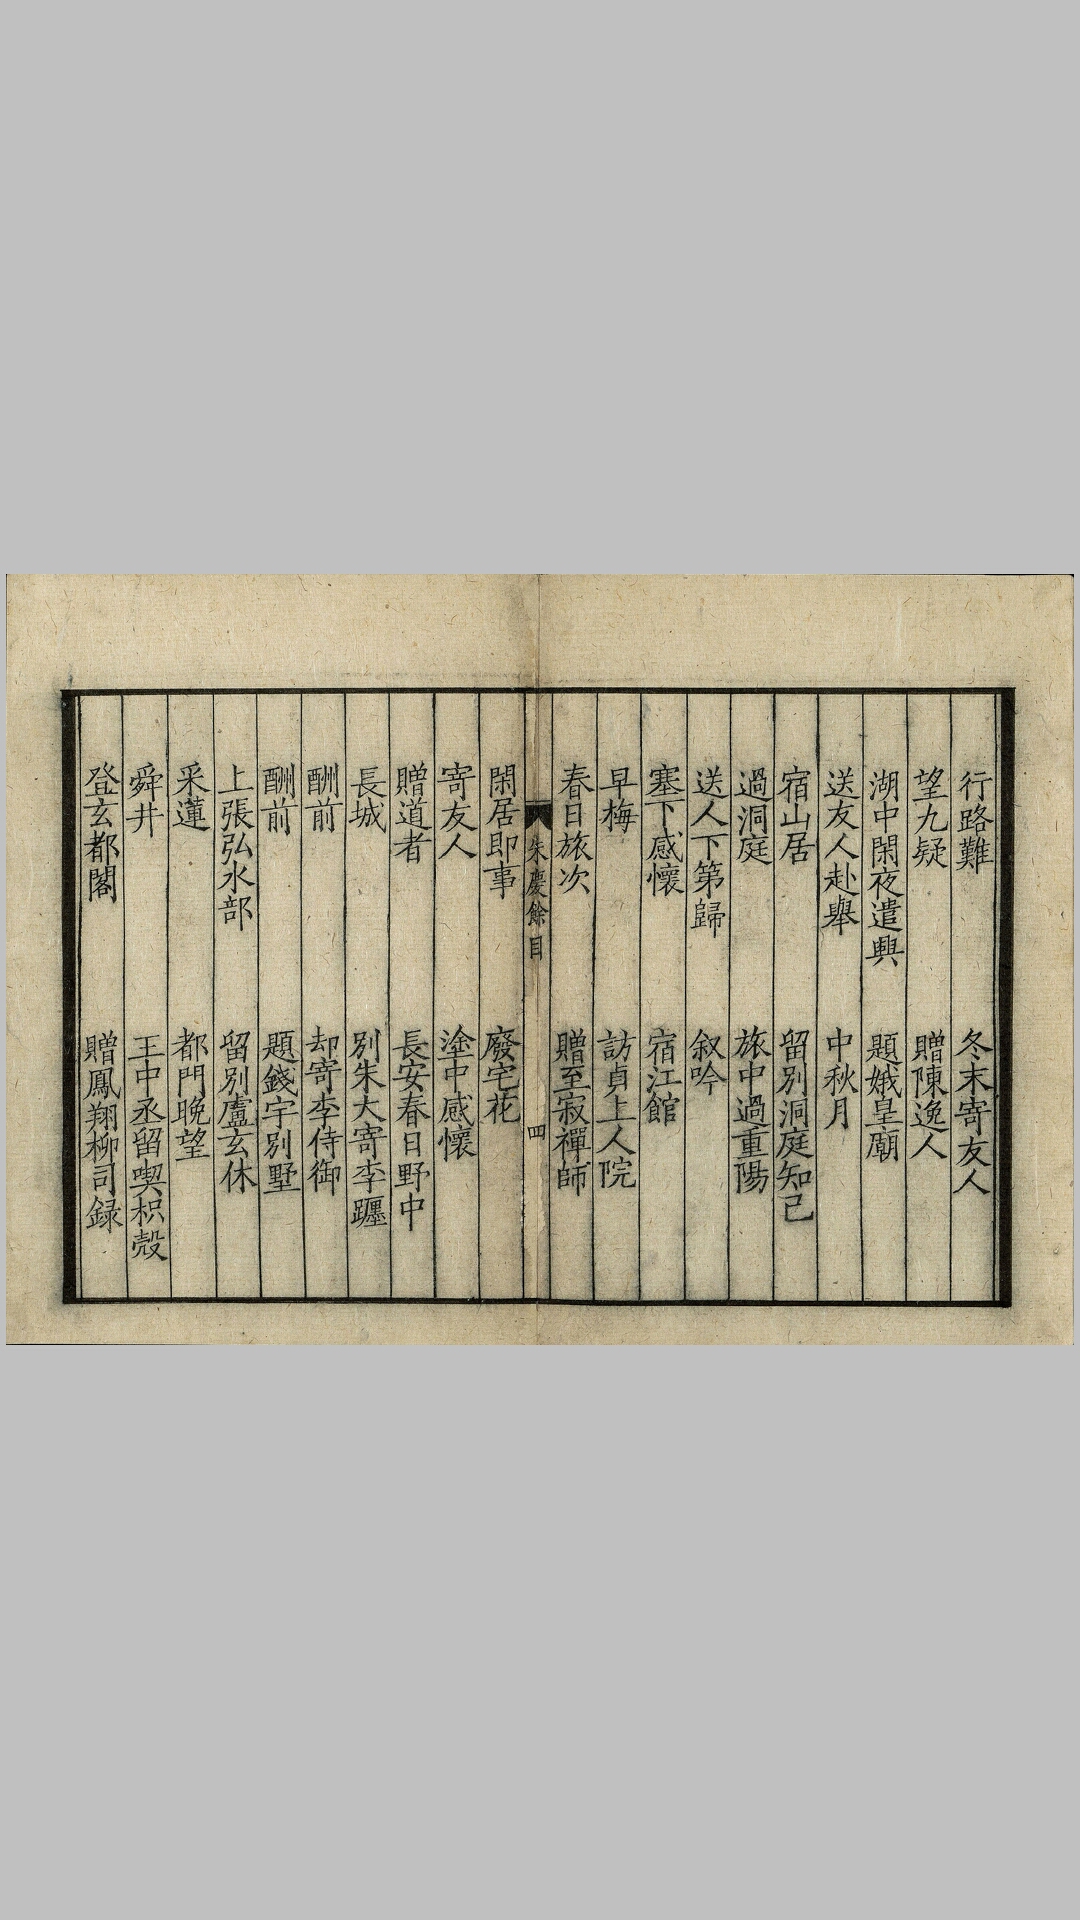 行路難 冬末寄友人
望九疑 贈陳逸人
湖中閑夜遣興 題娥皇廟
送友人赴舉 中秋月
宿山居 留別洞庭知己
過洞庭 旅中過重陽
送人下第歸 叙吟
塞下感懷 宿江館
早梅 訪貞上人院
春日旅次 贈至寂禪師
朱慶餘目 四
閑居即事 廢宅花
寄友人 塗中感懷
贈道者 長安春日野中
長城 別朱大寄李躔
酬前 却寄李侍御
酬前 題錢宇別墅
上張弘水部 留別盧玄休
采蓮 都門晚望
舜井 王中丞留喫枳殼
登玄都閣 贈鳳翔柳司録